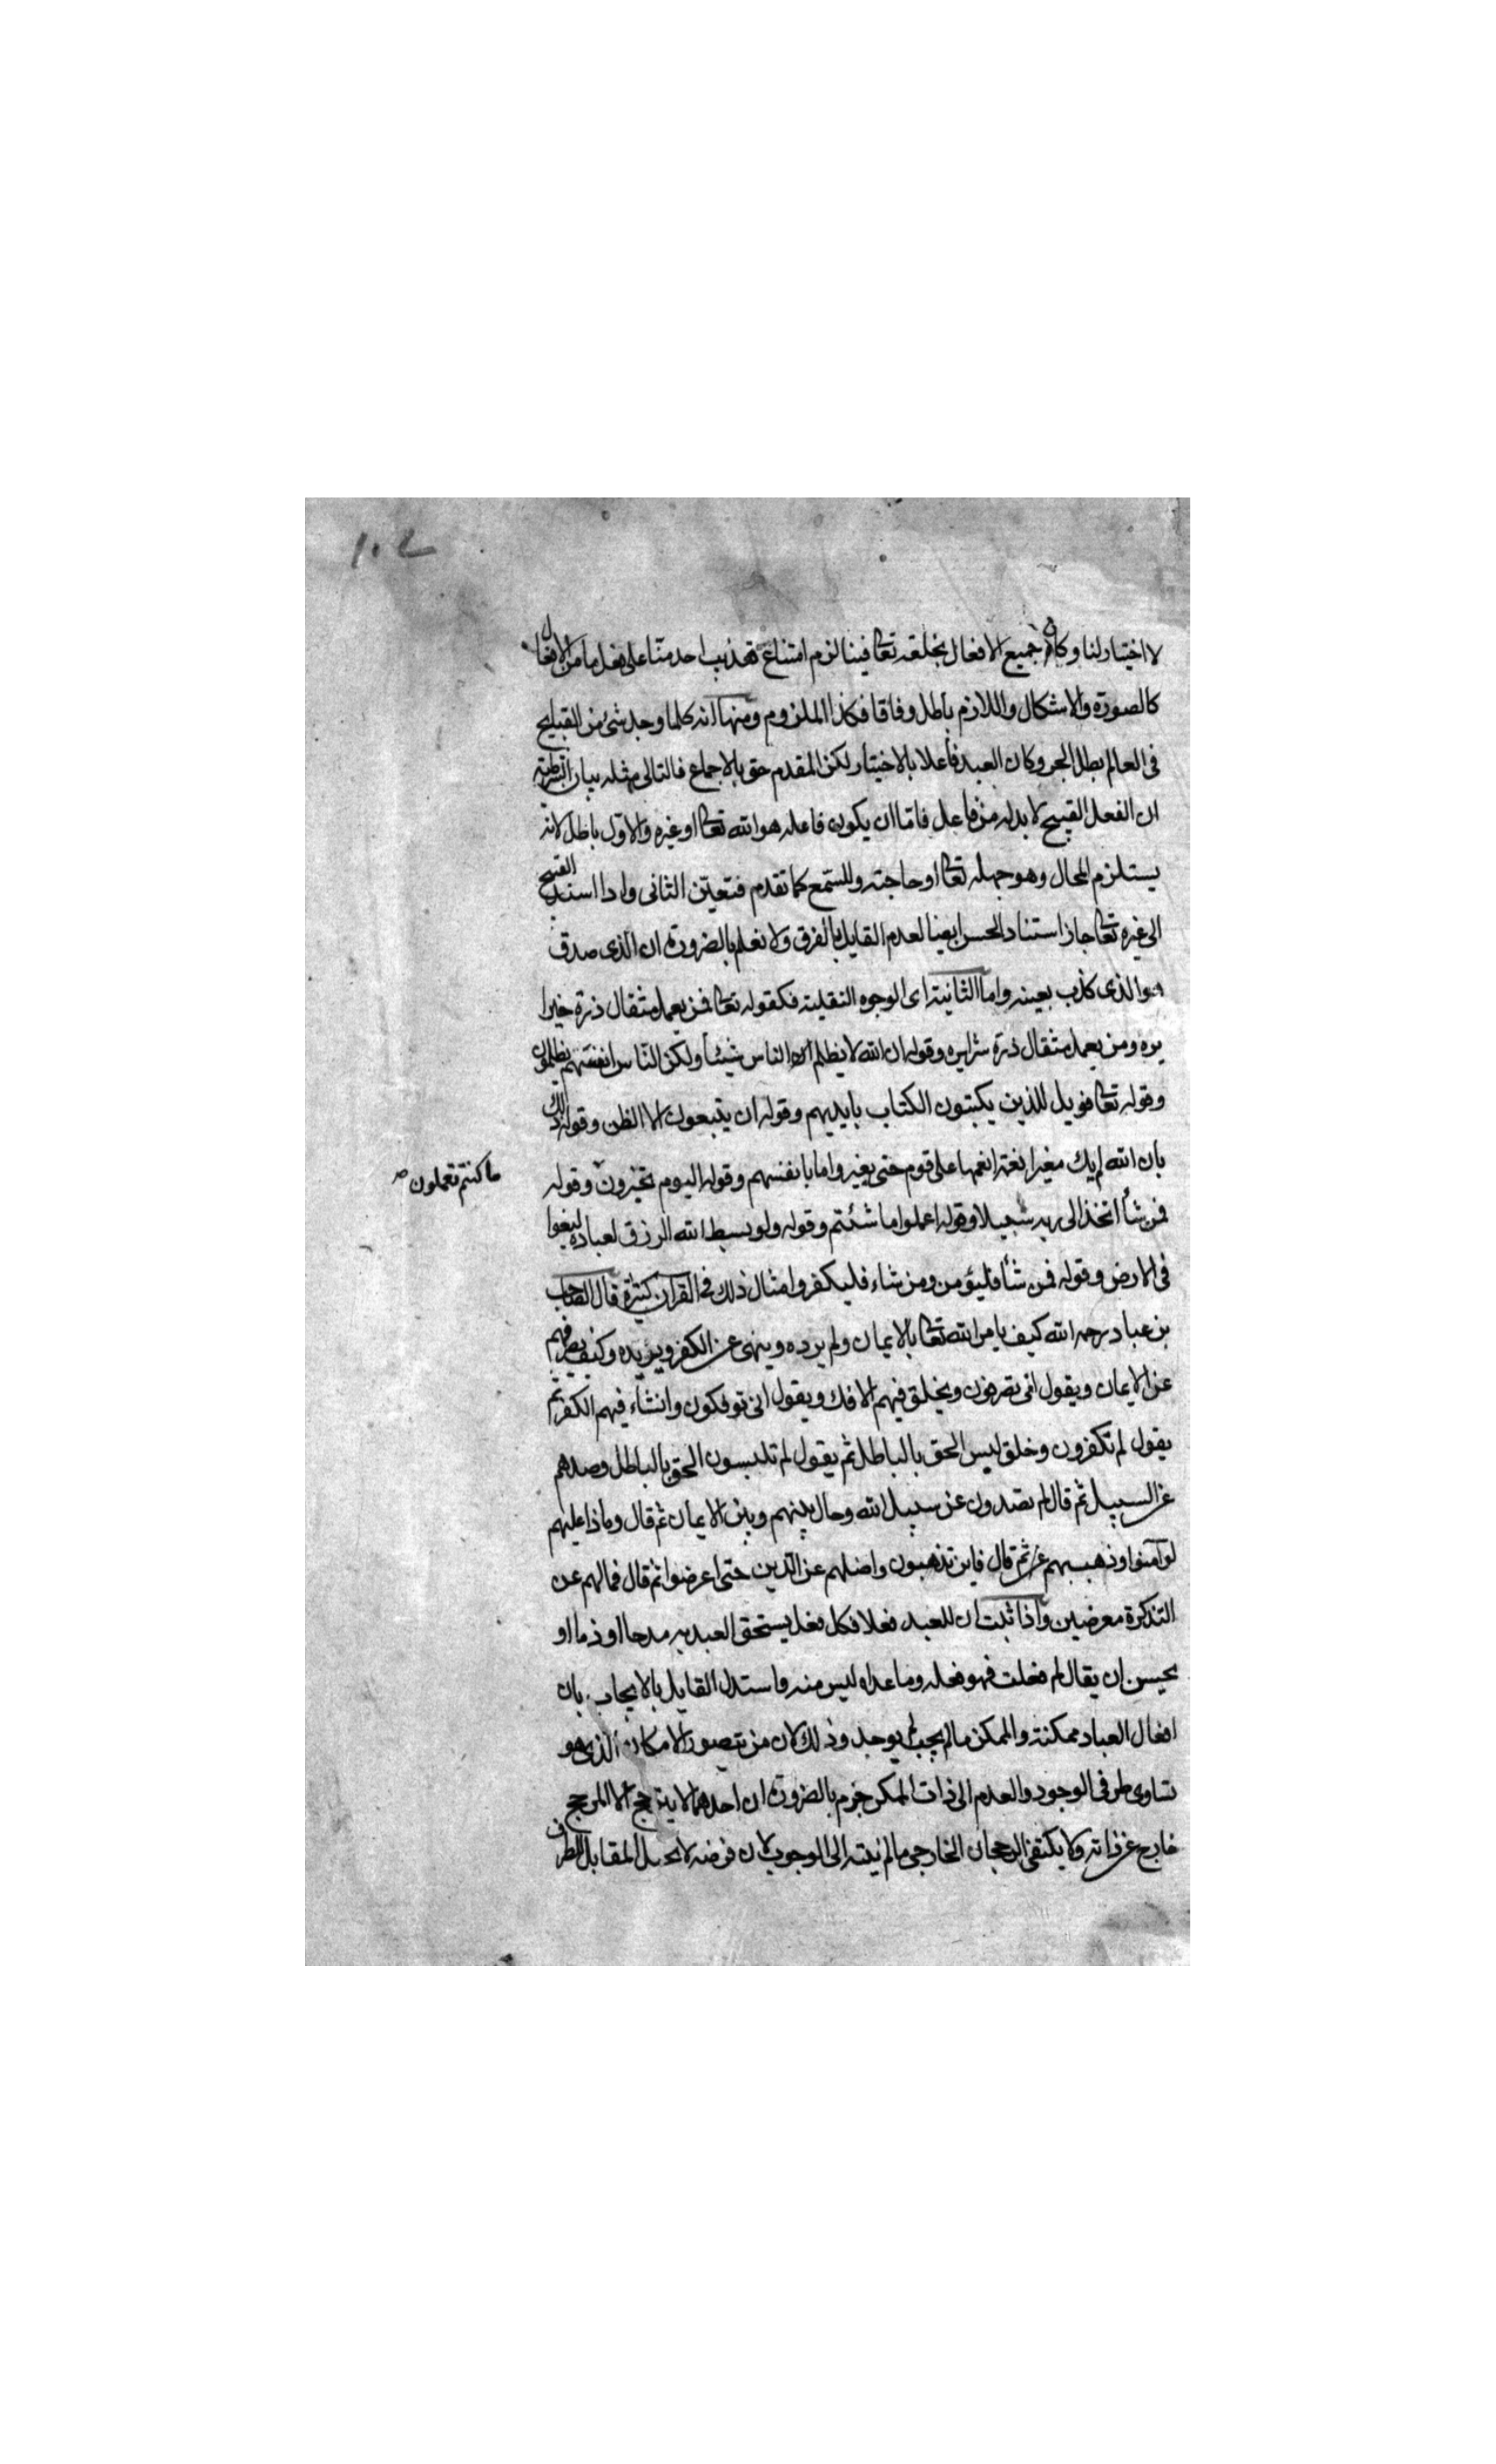 ١٠٢
لا اختيار لنا وكان جميع الافعال بخلقه تعالى فينا لزم امتناع تعذيب احد منا على فعل ما من الافعال
كالصورة والاشكال واللازم باطل وفاقا فكذا الملزوم ومنها انه كلما وجد شئ من القبايح
فى العالم بطل الجبر وكان العبد فاعلا بالاختيار لكن المقدم حق بالاجماع فالتالى مثله بيان الشرطية
ان الفعل القبيح لا بد له من فاعل فاما ان يكون فاعله هو الله تعالى او غيره والاول باطل لانه
يستلزم المحال وهو جهله تعالى او حاجته وللسمع كما تقدم فتعين الثانى واذا استند القبيح
الى غيره تعالى جاز استناد الحسن ايضا لعدم القايل بالفرق ولانعلم بالضرورة ان الذى صدق
هو الذى كذب بعينه واما الثانية اى الوجوه النقلية فكقوله تعالى فمن يعمل مثقال ذرة خيرا
يره ومن يعمل مثقال ذرة شرا يره وقوله ان الله لا يظلم الناس شيئا ولكن الناس انفسهم يظلمون
وقوله تعالى فويل للذين يكتبون الكتاب بايديهم وقوله ان يتبعون الا الظن وقوله ذلك
بان الله لم يك مغيرا نعمة انعمها على قوم حتى يغيروا ما بانفسهم وقوله اليوم تجزون وقوله
ما كنتم تعملون صح
فمن شأ اتخذ الى ربه سبيلا وقوله اعملوا ما شئتم وقوله ولو بسط الله الرزق لعباده لبغوا
فى الارض وقوله فمن شأ فليؤمن ومن شاء فليكفر وامثال ذلك فى القران كثيرة قال الصاحب
بن عباد رحمه الله كيف يامر الله تعالى بالايمان ولم يرده وينهى عن الكفر ويريده وكيف يصرفهم
عن الايمان ويقول انى تصرفون ويخلق فيهم الافك ويقول انى توفكون وانشاء فيهم الكفر ثم
يقول لم تكفرون وخلق لبس الحق بالباطل ثم يقول لم تلبسون الحق بالباطل وصدهم
عن السبيل ثم قال لم تصدون عن سبيل الله وحال بينهم وبين الايمان ثم قال وماذا عليهم
لو آمنوا وذهب بهم عن ثم قال فاين تذهبون واضلهم عن الدين حتى اعرضوا ثم قال فما لهم عن
التذكرة معرضين واذا ثبت ان للعبد فعلا فكل فعل يستحق العبد به مدحا او ذما او
يحسن ان يقال لم فعلت فهو فعله وما عداه ليس منه واستدل القايل بالايجاب بان
افعال العباد ممكنة والممكن ما لم يجب لم يوجد وذلك لان من تصور الامكان الذى هو
تساوى طرفى الوجود والعدم الى ذات الممكن جزم بالضرورة ان احدهما لا يترجح الا لمرجح
خارج عن ذاته ولا يكتفى الرجحان الخارجى ما لم ينته الى الوجوب لان فرضه لا يحيل المقابل الطرف